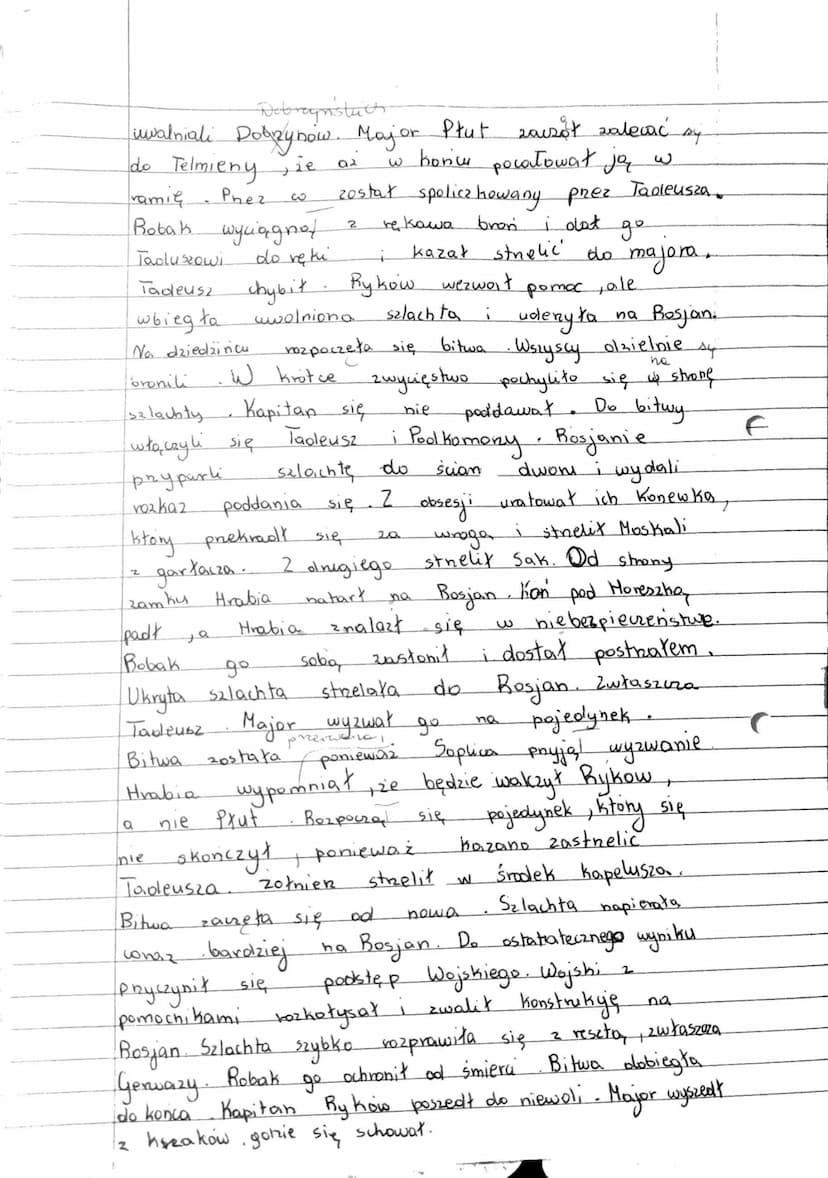 Dobrzyńskich
uwalniali Dobrzynów. Major Płut zaczął zalecać się
do Telmieny, że aż w końcu pocałował ją w
ramię. Przez co został spoliczkowany przez Tadeusza.
Robak wyciągnął z rękawa broń i dał go
Tadeuszowi do ręki i kazał strzelić do majora.
Tadeusz chybił. Ryków wezwał pomoc, ale
wbiegła uwolniona szlachta i uderzyła na Rosjan.
Na dziedzińcu rozpoczęła się bitwa. Wszyscy dzielnie się
na
bronili. W krótce zwycięstwo pochyliło się w stronę
szlachty. Kapitan się nie poddawał. Do bitwy
włączyli się Tadeusz i Podkomorzy. Rosjanie
przyparli szlachtę do ścian dworu i wydali
rozkaz poddania się. Z obsesji uratował ich Konewka,
który przekradł się za wroga i strzelił Moskali
z garłacza. Z drugiego strzelił Sak. Od strony
zamku Hrabia natarł na Rosjan. Koń pod Horeszką
padł, a Hrabia znalazł się w niebezpieczeństwe.
Robak go sobą zasłonił i dostał postrzałem.
Ukryta szlachta strzelała do Rosjan. Zwłaszcza
Tadeusz. Major wyzwał go na pojedynek.
przerwana,
Bitwa została ponieważ Soplica przyjął wyzwanie
Hrabia wypomniał, że będzie walczył Rykow,
a nie Płut. Rozpoczął się pojedynek, który się
nie skończył, ponieważ kazano zastrzelić
Tadeusza. Żołnierz strzelił w środek kapelusza.
Bitwa zaczęła się od nowa. Szlachta napierała
coraz bardziej na Rosjan. Do ostatatecznego wyniku
przyczynił się podstęp Wojskiego. Wojski z
pomocnikami rozkołysał i zwalił konstrukję na
Rosjan. Szlachta szybko rozprawiła się z resztą, zwłaszcza
Gerwazy. Robak go ochronił od śmierci. Bitwa dobiegła
do końca. Kapitan Ryków poszedł do niewoli. Major wyszedł
z krzaków, gdzie się schował.